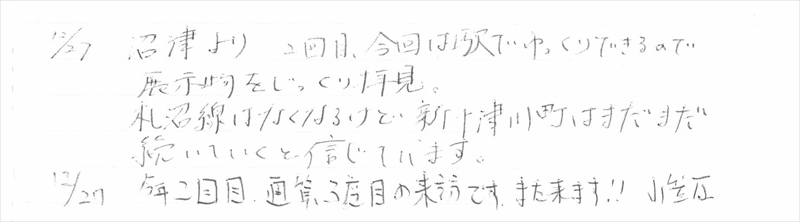 12/27 沼津より 2回目、今回は駅でゆっくりできるので
展示物をじっくり拝見。
札沼線はなくなるけど新十津川町はまだまだ
続いていくと信じています。
12/27 今年二回目、通算3度目の来訪です。また来ます!!